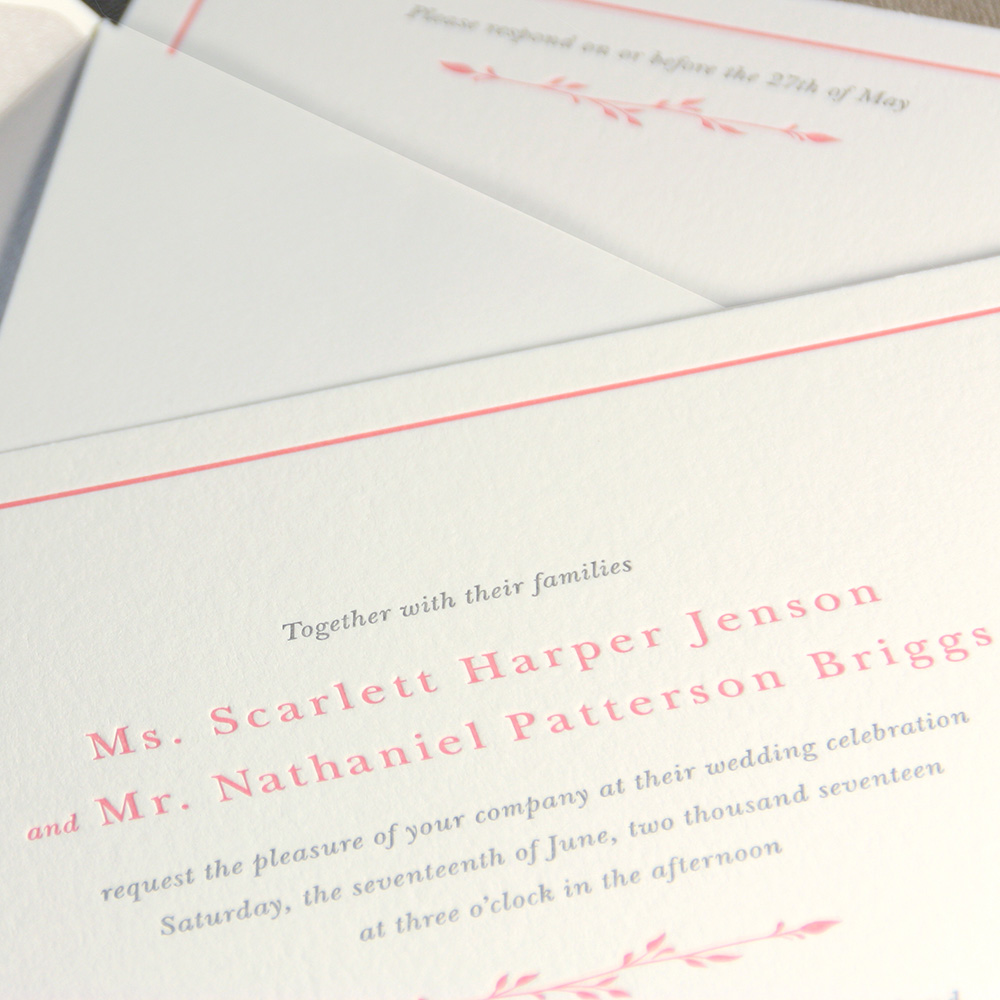 Please respond on or before the 27th of May
Together with their families
Ms. Scarlett Harper Jenson
and Mr. Nathaniel Patterson Briggs
request the pleasure of your company at their wedding celebration
Saturday, the seventeenth of June, two thousand seventeen
at three o'clock in the afternoon